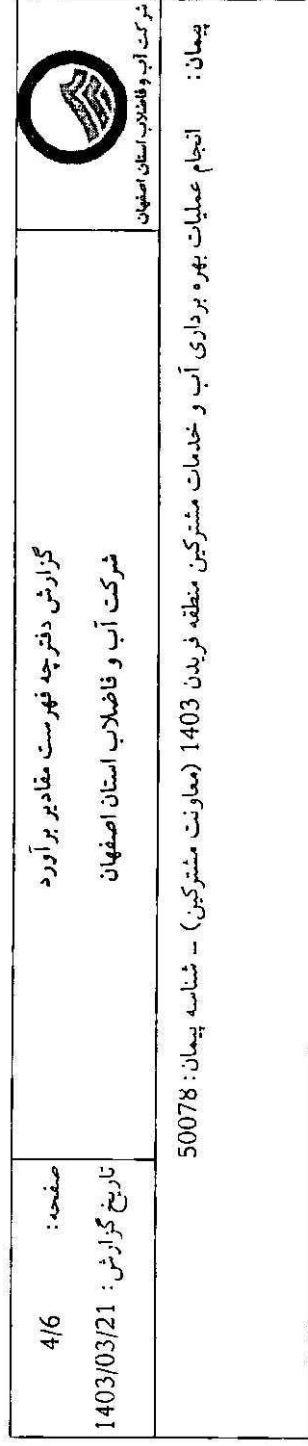 شرکت آب و فاضلاب استان اصفهان
گزارش دفترچه فهرست مقادیر برآورد
شرکت آب و فاضلاب استان اصفهان
صفحه: 4/6
تاریخ گزارش: 1403/03/21
پیمان: انجام عملیات بهره برداری آب و خدمات مشترکین منطقه فریدن 1403 (معاونت مشترکین) - شناسه پیمان: 50078